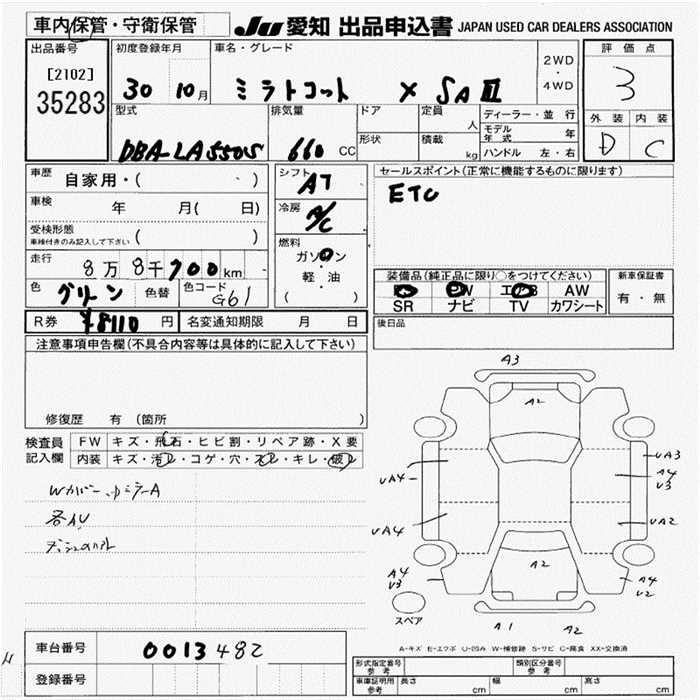 車内保管・守衛保管
JU 愛知 出品申込書 JAPAN USED CAR DEALERS ASSOCIATION
出品番号
[2102]
35283
初度登録年月
30 10月
車名・グレード
ミラトコット X SAⅢ
2WD
・
4WD
評価点
3
外装 内装
D C
型式
DBA-LA550S
排気量
660 CC
ドア
形状
定員
人
積載
kg
ディーラー・並 行
モデル年式 年
ハンドル 左・右
車歴 自家用・( 、 )
車検 年 月( 日)
受検形態
車検付きのみ記入して下さい ( )
走行 8万8千700km
色 グリーン 色替 色コード G61
シフト
AT
冷房
A/C
燃料
ガソリン
軽・油
( )
セールスポイント(正常に機能するものに限ります)
ETC
装備品(純正品に限り○をつけてください)
AW
SR ナビ TV カワシート
新車保証書
有・無
後日品
R券 ¥8110 円 名変通知期限 月 日
注意事項申告欄(不具合内容等は具体的に記入して下さい)
修復歴 有(箇所 )
検査員
記入欄
FW キズ・飛石・ヒビ割・リペア跡・X要
内装 キズ・汚レ・コゲ・穴・スレ・キレ・破レ
Wカバー
A3
A2
UA4
UA3
A4
U3
UA4
UA2
A2
A4
U3
A4
U2
スペア
A1 A2
A-キズ E-エクボ U-凹み W-補修跡 S-サビ C-腐食 XX-交換済
車台番号 0013482
登録番号
形式指定番号
参考
類別区分番号
参考
車庫証明用
参考
長さ cm 幅 cm 高さ cm